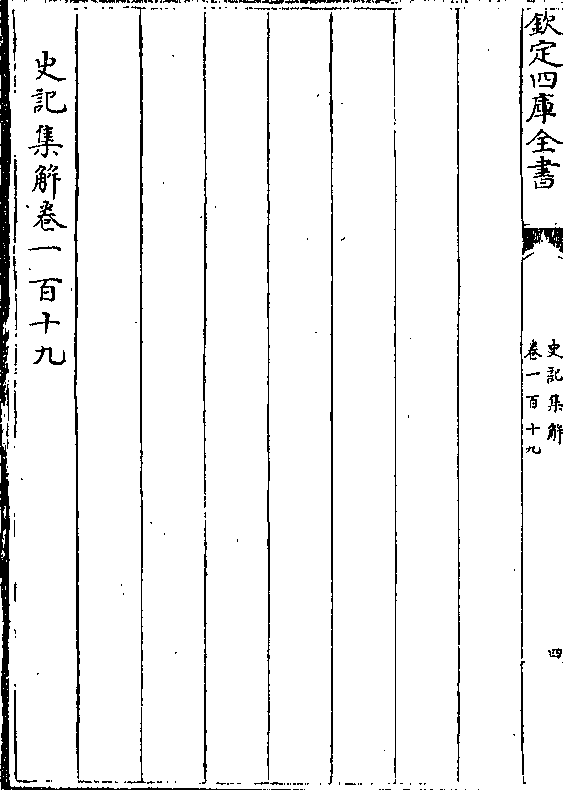 欽定四庫全書
史記集解
卷一百十九
四
史記集解卷一百十九